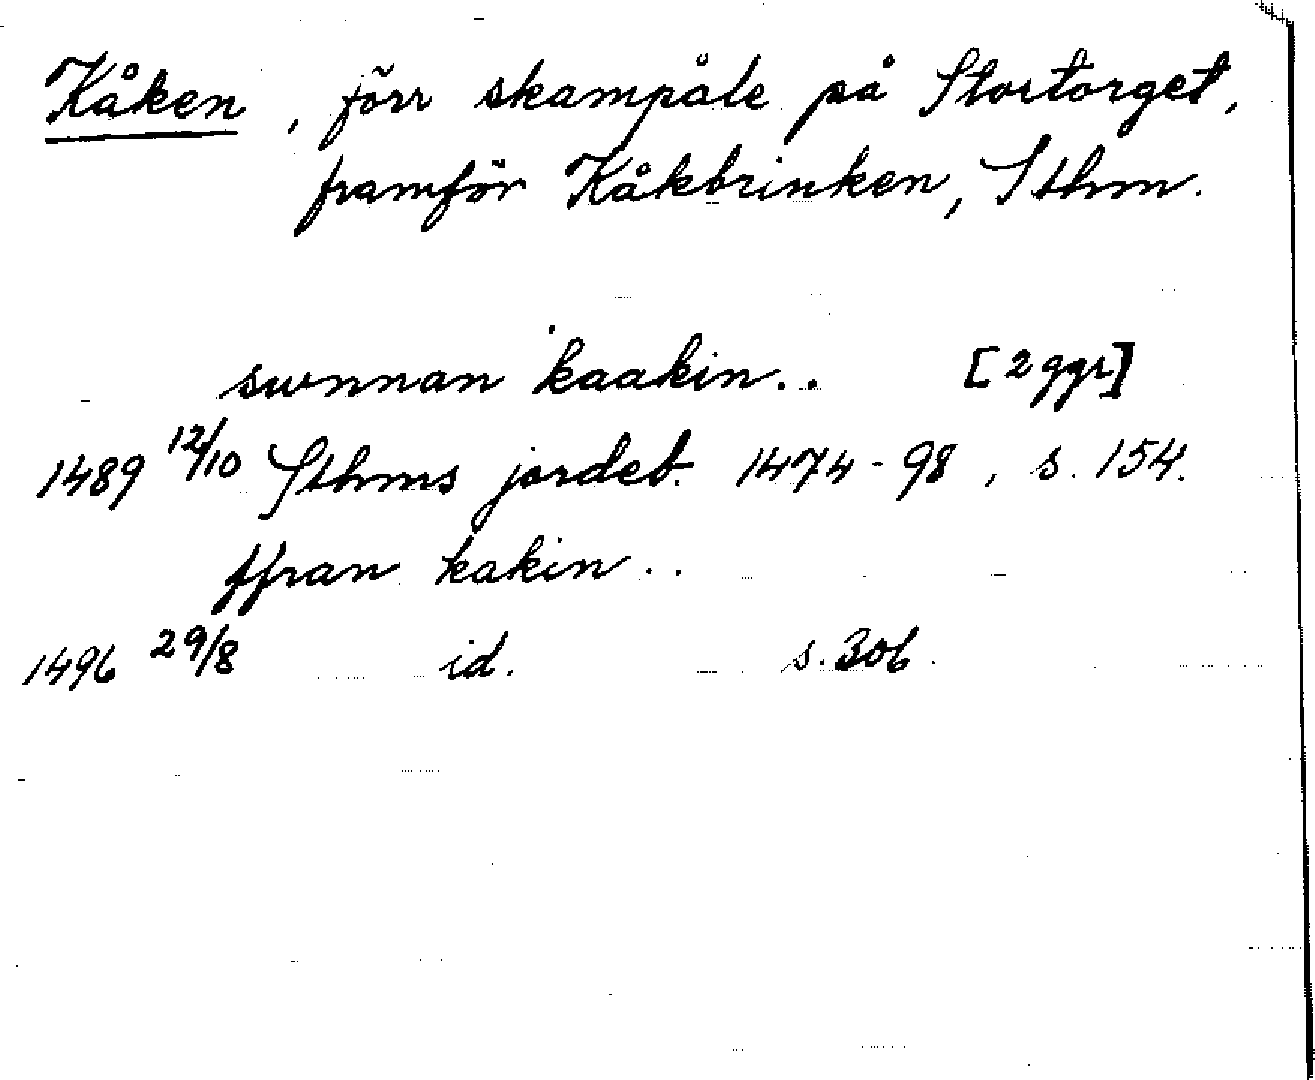 Kåken, förr skampåle på Stortorget,
framför Kåkbrinken, Sthm.
swnnan kaakin.. [2 ggr]
1489 12/10 Sthms jordeb. 1474-98, s. 154.
ffran kakin..
1496 29/8 id. s. 306.